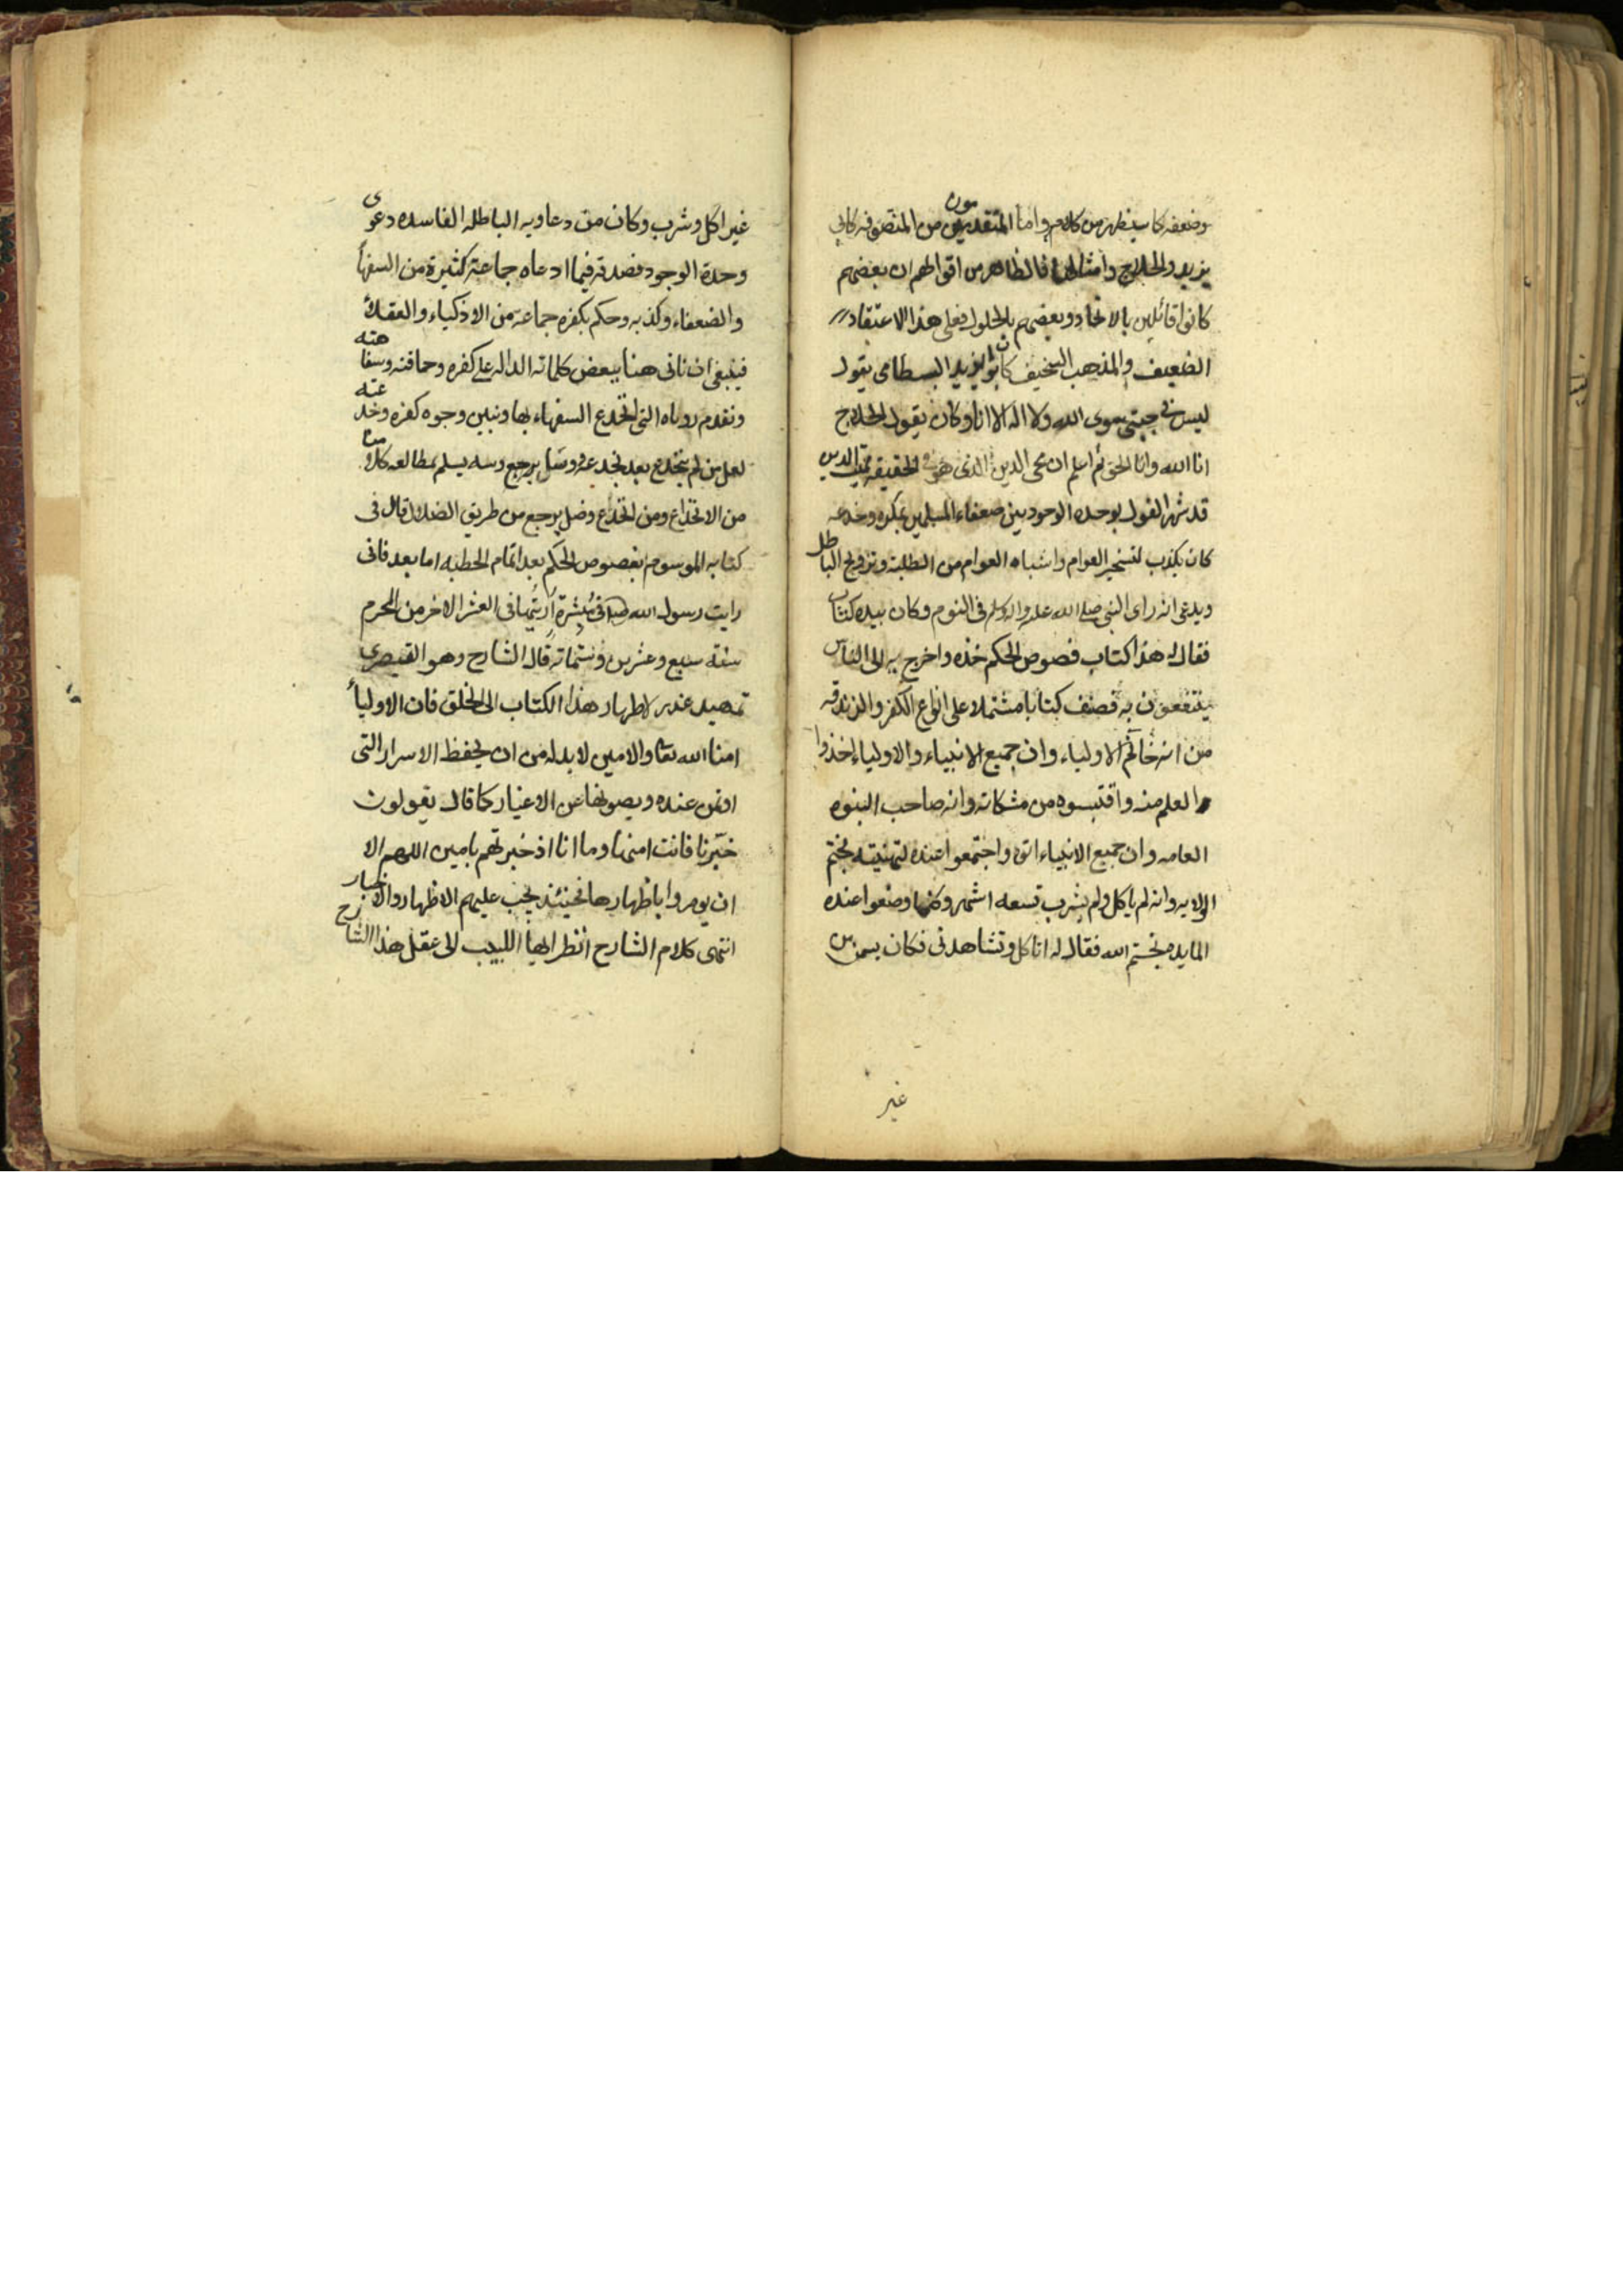 وضعفه كما سيظهر من كلامهم واما المتقدمون من المتصوفه كابي
يزيد والحلاج وامثالهما فالظاهر من اقوالهم ان بعضهم
كانوا قائلين بالاتحاد وبعضهم بالحلول فعلى هذا الاعتقاد
الضعيف والمذهب السخيف كان ابو يزيد البسطامى يقول
ليس في جبتى سوى الله ولا اله الا انا وكان يقول الحلاج
انا الله وانا الحق ثم اعلم ان محى الدين الذى هو في الحقيقه مميت الدين
قد شهر القول بوحده الوجود بين ضعفاء المسلمين بمكره وخدعه
كان يكذب لتسخير العوام واشباه العوام من الطلبة وترويج الباطل
ويدعى انه راى النبي صلى الله عليه واله وسلم فى النوم وكان بيده كتاب
فقال له هذا كتاب فصوص الحكم خذه واخرج به الى الناس
ينتفعون به فصنف كتابا مشتملا على انواع الكفر والزندقه
من انه خاتم الاولياء وان جميع الانبياء والاولياء اخذوا
العلم منه واقتبسوه من مشكاته وانه صاحب النبوه
العامه وان جميع الانبياء اتوه واجتمعوا عنده لتهنيته بختم
الولايه وانه لم ياكل ولم يشرب تسعه اشهر وكلما وضعوا عنده
المايده فقال له انا اكل وتشاهدنى فكان يسمن من
غير
غير اكل وشرب وكان من دعاويه الباطله الفاسده دعوى
وحدة الوجود فصدقه فيما ادعاه جماعة كثيرة من السفهأ
والضعفاء وكذبه وحكم بكفره جماعة من الاذكياء والعقلأ
فينبغى ان ناتى هنا ببعض كلماته الداله على كفره وحماقته وسفاهته
ونقدم روياه التى انخدع السفهاء بها ونبين وجوه كفره وخدعته
لعل من لم ينخدع بعد بخدعه يسلم بمطالعه كلامنا
من الانخداع ومن انخدع وضل يرجع من طريق الضلال قال فى
كتابه الموسوم بفصوص الحكم بعد اتمام الخطبه اما بعد فانى
رايت رسول الله صلع فى مبشرة أريتها فى العشر الاخر من المحرم
سنة سبع وعشرين وستمائة قال الشارح وهو القيصرى
تمهيد عذر لاظهار هذا الكتاب الى الخلق فان الاوليأ
امنا الله تعا والامين لابد له من ان يحفظ الاسرار التى
اوتمن عنده ويصونها عن الاغيار كما قال يقولون
خبرنا فانت امينها وما انا اذ خبرتهم بامين اللهم الا
ان يومروا باظهارها فحينئذ يجب عليهم الاظهار والاخبار
انتهى كلام الشارح انظر ايها اللبيب الى عقل هذا الشارح